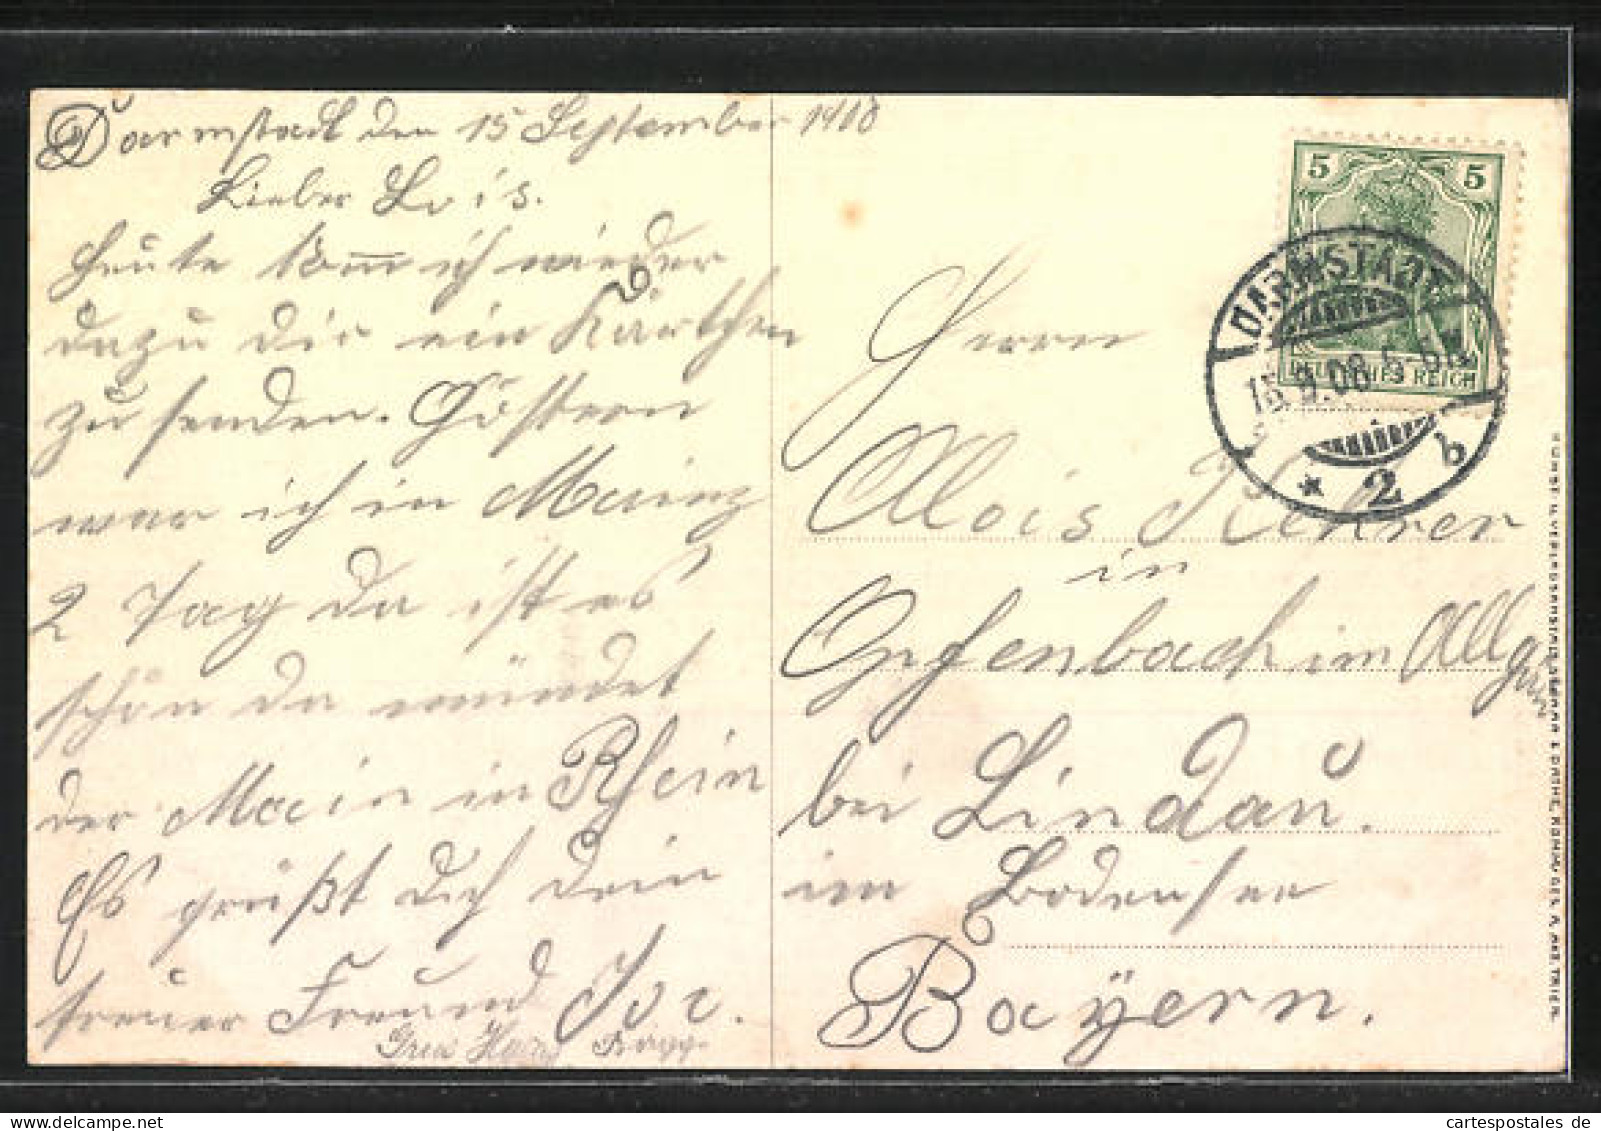 Darmstadt den 15 September 1908
Lieber Lois.
Heute komm ich wieder
dazu dir ein Kärtchen
zu senden. Gestern
war ich in Mainz
2 Tag da ist es
schön da mündet
der Main in Rhein
Es grüßt dich dein
treuer Freund
Herrn
Alois
in
Opfenbach im Allgäu
bei Lindau.
im Bodensee
Bayern.
5 5
DEUTSCHES REICH
DARMSTADT
15.9.08.
* 2 b
cartespostales de